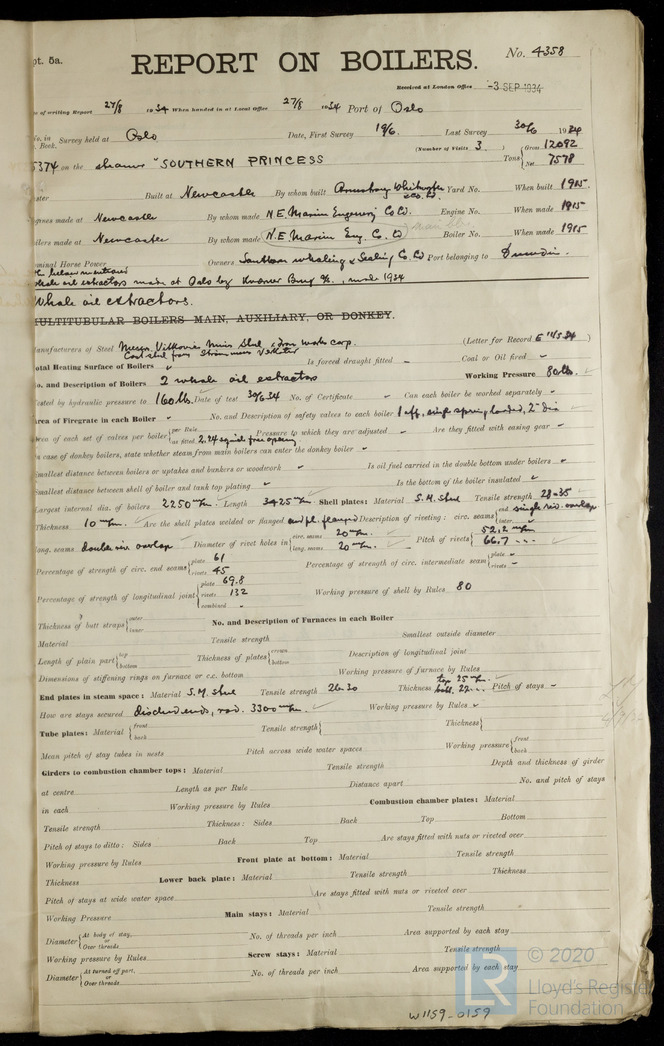 pt. 5a.
REPORT ON BOILERS.
No. 4358
Received at London Office -3 SEP 1934
of writing Report 27/8 1934 When handed in at Local Office 27/8 1934 Port of Oslo
No. in Survey held at Oslo Date, First Survey 19/6. Last Survey 30/6 1934
. Book. (Number of Visits 3.
5374 on the steamer "SOUTHERN PRINCESS Tons Gross 12092 Net 7578
ster Built at Newcastle By whom built Armstrong Whitworth & Co. Ld. Yard No. When built 1915
gines made at Newcastle By whom made N.E. Marine Engineering Co Ld. Engine No. When made 1915
ilers made at Newcastle By whom made N.E. Marine Eng. Co. Ld Boiler No. When made 1915
minal Horse Power Owners Southern whaling & Sealing Co. Ld Port belonging to Dunedin.
The below mentioned
whale oil extractors made at Oslo by Kværner Brug A/S, made 1934
Whale oil extractors.
MULTITUBULAR BOILERS MAIN, AUXILIARY, OR DONKEY.
anufacturers of Steel Messrs. Vitkovice Mines Steel & Iron works corp. (Letter for Record E 11/5 34 )
Cast steel from
otal Heating Surface of Boilers Is forced draught fitted – Coal or Oil fired –
o. and Description of Boilers 2 whale oil extractors Working Pressure 80 lbs.
ested by hydraulic pressure to 160 lbs. Date of test 30/6 34 No. of Certificate – Can each boiler be worked separately
Area of Firegrate in each Boiler No. and Description of safety valves to each boiler 1 off, single spring loaded, 2" dia
Area of each set of valves per boiler per Rule as fitted 2.24 equid free opening Pressure to which they are adjusted – Are they fitted with easing gear
In case of donkey boilers, state whether steam from main boilers can enter the donkey boiler
Smallest distance between boilers or uptakes and bunkers or woodwork Is oil fuel carried in the double bottom under boilers
Smallest distance between shell of boiler and tank top plating Is the bottom of the boiler insulated
Largest internal dia. of boilers 2250 m/m. Length 3425 m/m. Shell plates: Material S.M. Steel Tensile strength 28-35
Thickness 10 m/m. Are the shell plates welded or flanged end pl. flanged Description of riveting: circ. seams end single riv. overlap inter.
long. seams double riv. overlap Diameter of rivet holes in circ. seams 20 m/m. long. seams 20 m/m. Pitch of rivets 52,2 m/m 66,7
Percentage of strength of circ. end seams plate 61 rivets 45 Percentage of strength of circ. intermediate seam plate rivets
Percentage of strength of longitudinal joint plate 69.8 rivets 132 combined Working pressure of shell by Rules 80
Thickness of butt straps outer inner No. and Description of Furnaces in each Boiler
Material Tensile strength Smallest outside diameter
Length of plain part top bottom Thickness of plates crown bottom Description of longitudinal joint
Dimensions of stiffening rings on furnace or c.c. bottom Working pressure of furnace by Rules
End plates in steam space: Material S.M. Steel Tensile strength 26-30 Thickness top 25 m/m. bott. 22 Pitch of stays
How are stays secured dished ends, rad. 3300 m/m. Working pressure by Rules
Tube plates: Material front back Tensile strength Thickness
Mean pitch of stay tubes in nests Pitch across wide water spaces Working pressure front back
Girders to combustion chamber tops: Material Tensile strength Depth and thickness of girder
at centre Length as per Rule Distance apart No. and pitch of stays
in each Working pressure by Rules Combustion chamber plates: Material
Tensile strength Thickness: Sides Back Top Bottom
Pitch of stays to ditto: Sides Back Top Are stays fitted with nuts or riveted over
Working pressure by Rules Front plate at bottom: Material Tensile strength
Thickness Lower back plate: Material Tensile strength Thickness
Pitch of stays at wide water space Are stays fitted with nuts or riveted over
Working Pressure Main stays: Material Tensile strength
Diameter At body of stay, or Over threads No. of threads per inch Area supported by each stay
Working pressure by Rules Screw stays: Material Tensile strength
Diameter At turned off part, or Over threads No. of threads per inch Area supported by each stay
W1159-0159
LR © 2020 Lloyd's Register Foundation